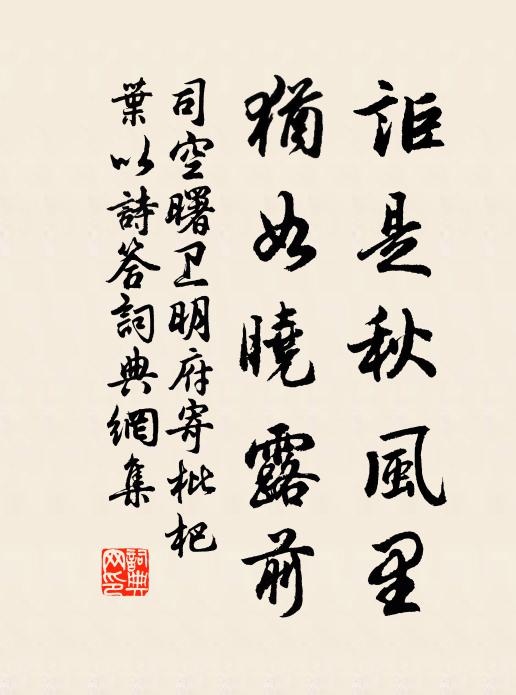 詎是秋風里
猶如曉露前
司空曙卫明府寄枇杷
葉以詩答詞典網集
詞典網印